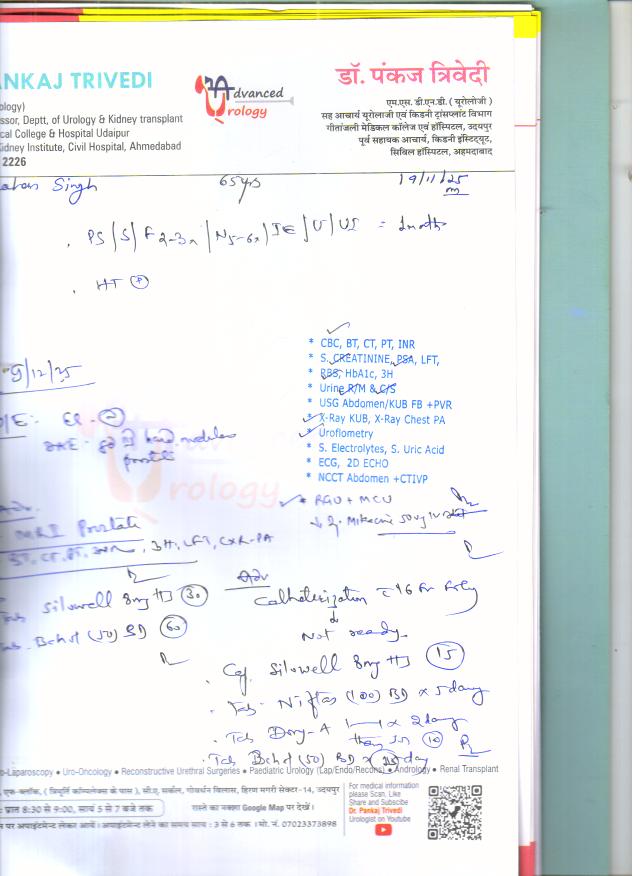 ANKAJ TRIVEDI
Advanced
Urology
डॉ. पंकज त्रिवेदी
ology)
ssor, Deptt, of Urology & Kidney transplant
cal College & Hospital Udaipur
idney Institute, Civil Hospital, Ahmedabad
2226
एम.एस. डी.एन.बी. ( यूरोलोजी )
सह आचार्य यूरोलाजी एवं किडनी ट्रांसप्लांट विभाग
गीतांजली मेडिकल कॉलेज एवं हॉस्पिटल, उदयपुर
पूर्व सहायक आचार्य, किडनी इंस्टिट्यूट,
सिविल हॉस्पिटल, अहमदाबाद
Singh 65 yrs 19/11/25
PS/S/F2-3x/N5-6x/
HT +
* CBC, BT, CT, PT, INR
* S. CREATININE, PSA, LFT,
* RBS, HbA1c, 3H
* Urine R/M & C/S
* USG Abdomen/KUB FB +PVR
* X-Ray KUB, X-Ray Chest PA
* Uroflometry
* S. Electrolytes, S. Uric Acid
* ECG, 2D ECHO
* NCCT Abdomen +CTIVP
* RGU + MCU
9/12/25
hard nodular
prostate
MRI Prostate
BT, CT, PT, 3H, LFT, CXR-PA
Tab Silowell 8mg HS 30
Tab. Bchol (50) BD 60
Adv
Catheterization c 16 Fr Foly
Not ready
Cap. Silowell 8mg HS 15
Tab. Niftas (100) BD x 5 day
Tab Dory-A 1—1 x 2 day
then 10
Tab Bchol (50) BD x 15 day
o-Laparoscopy • Uro-Oncology • Reconstructive Urethral Surgeries • Paediatric Urology (Lap/Endo/Recons) • Andrology • Renal Transplant
एफ-ब्लॉक, ( त्रिमूर्ति कॉम्पलेक्स के पास ), सी.ए. सर्कल, गोवर्धन विलास, हिरण मगरी सेक्टर-14, उदयपुर
प्रात 8:30 से 9:00, सायं 5 से 7 बजे तक रास्ते का नक्शा Google Map पर देखें।
पर अपाइंटमेन्ट लेकर आयें। अपाइंटमेन्ट लेने का समय सायं : 3 से 6 तक । मो. नं. 07023373898
For medical information
please Scan, Like
Share and Subscibe
Dr. Pankaj Trivedi
Urologist on Youtube